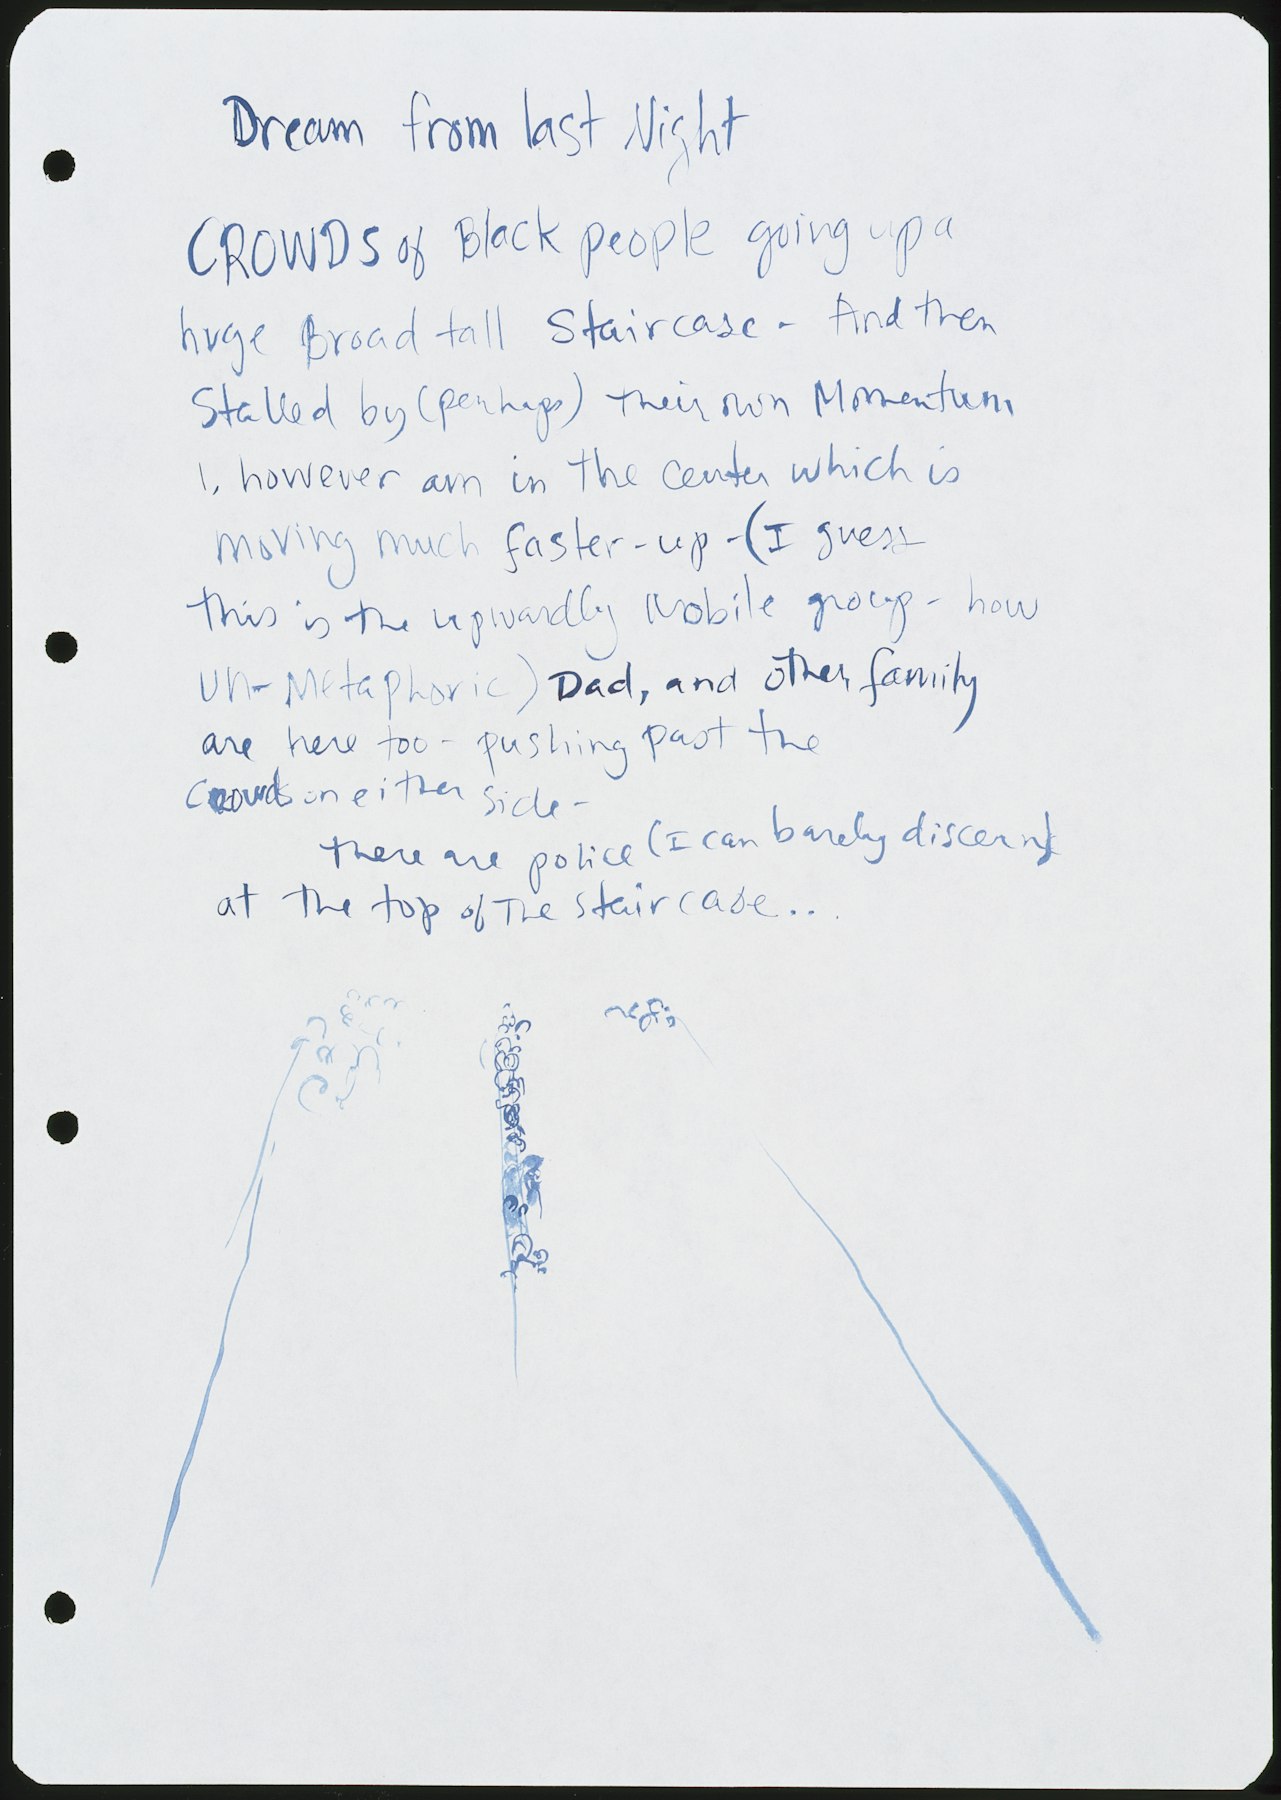 Dream from last Night
CROWDS of Black people going up a
huge Broad tall Staircase - And then
Stalled by (perhaps) their own Momentum
I, however am in the center which is
moving much faster - up - (I guess
this is the upwardly mobile group - how
un-Metaphoric) Dad, and other family
are here too - pushing past the
crowds on either side -
there are police (I can barely discern)
at the top of The staircase...